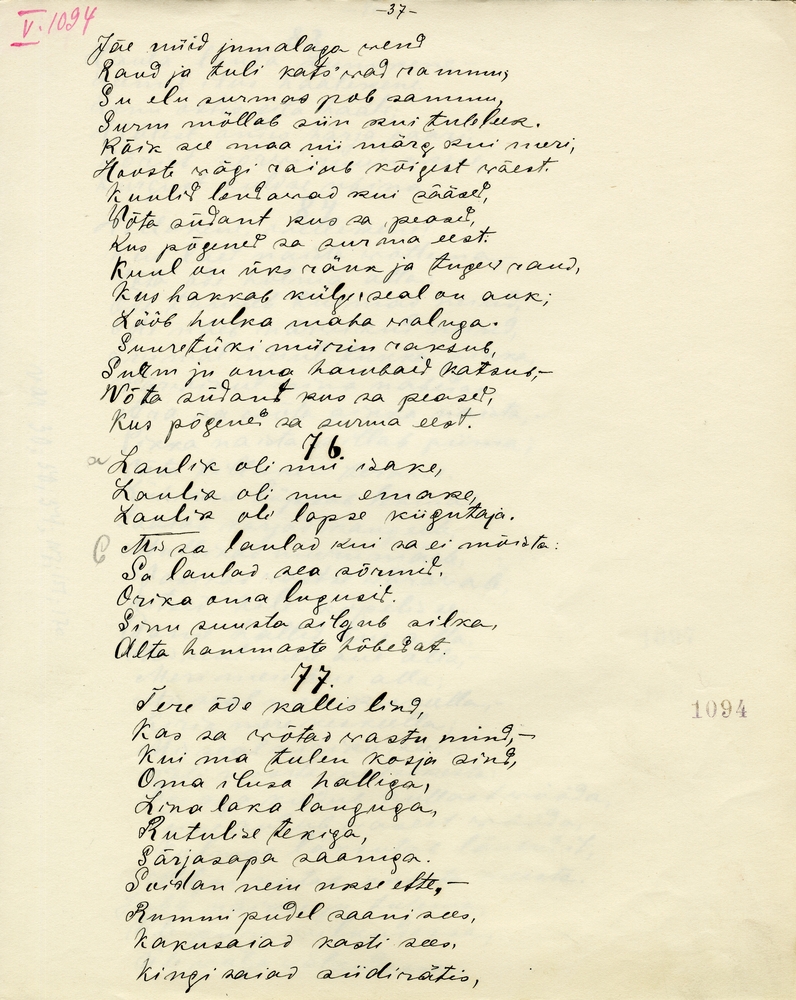 -37-
V. 1094
Jäe nüid jumalaga wend
Raud ja tuli kats'wad rammu,
Su elu surmas pob sammu,
Surm möllab siin kui tuleleek.
Kõik see maa nii märg kui meri,
Hooste wägi raiub kõigest wäest.
Kuulid lendawad kui sääsed,
Wõta südant kus sa peased,
Kus põgened sa surma eest.
Kuul on üks ränk ja tugew raud,
Kus hakkab külge, seal on auk;
Lööb hulka maha waluga.
Suuretüki mürin raksub,
Surm ju oma hambaid katsub,-
Wõta südant kus sa peased,
Kus põgened sa surma eest.
76.
a Laulik oli mu isake,
Laulik oli mu emake,
Laulik oli lapse kiigutaja.
b Mis sa laulad kui sa ei mõista:
Sa laulad sea sõrmid,
Orika oma lugusid.
Sinu suusta silgub silka,
Alta hammaste hõbedat.
77.
Tere õde kallis lind,
Kas sa wõtad wastu mind,-
Kui ma tulen kosja sind,
Oma ilusa halliga,
Lina laka languga,
Rutulise tekiga,
Särjasapa saaniga.
Soidan neiu ukse ette,-
Rummi pudel saani sees,
Kakusaiad kasti sees,
Kingi saiad siidirätis,
1094